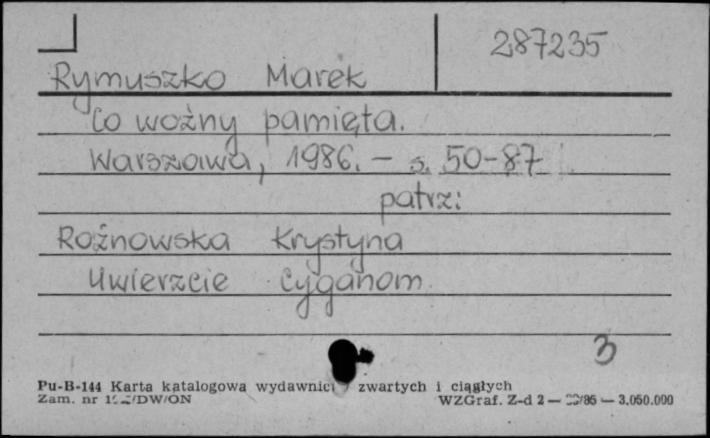 287235
Rymuszko Marek
Co woźny pamięta.
Warszawa, 1986. - s. 50-87
patrz:
Rożnowska Krystyna
Uwierzcie Cyganom
3
Pu-B-144 Karta katalogowa wydawnictw zwartych i ciągłych
Zam. nr /DW/ON WZGraf. Z-d 2 — /86 — 3.050.000